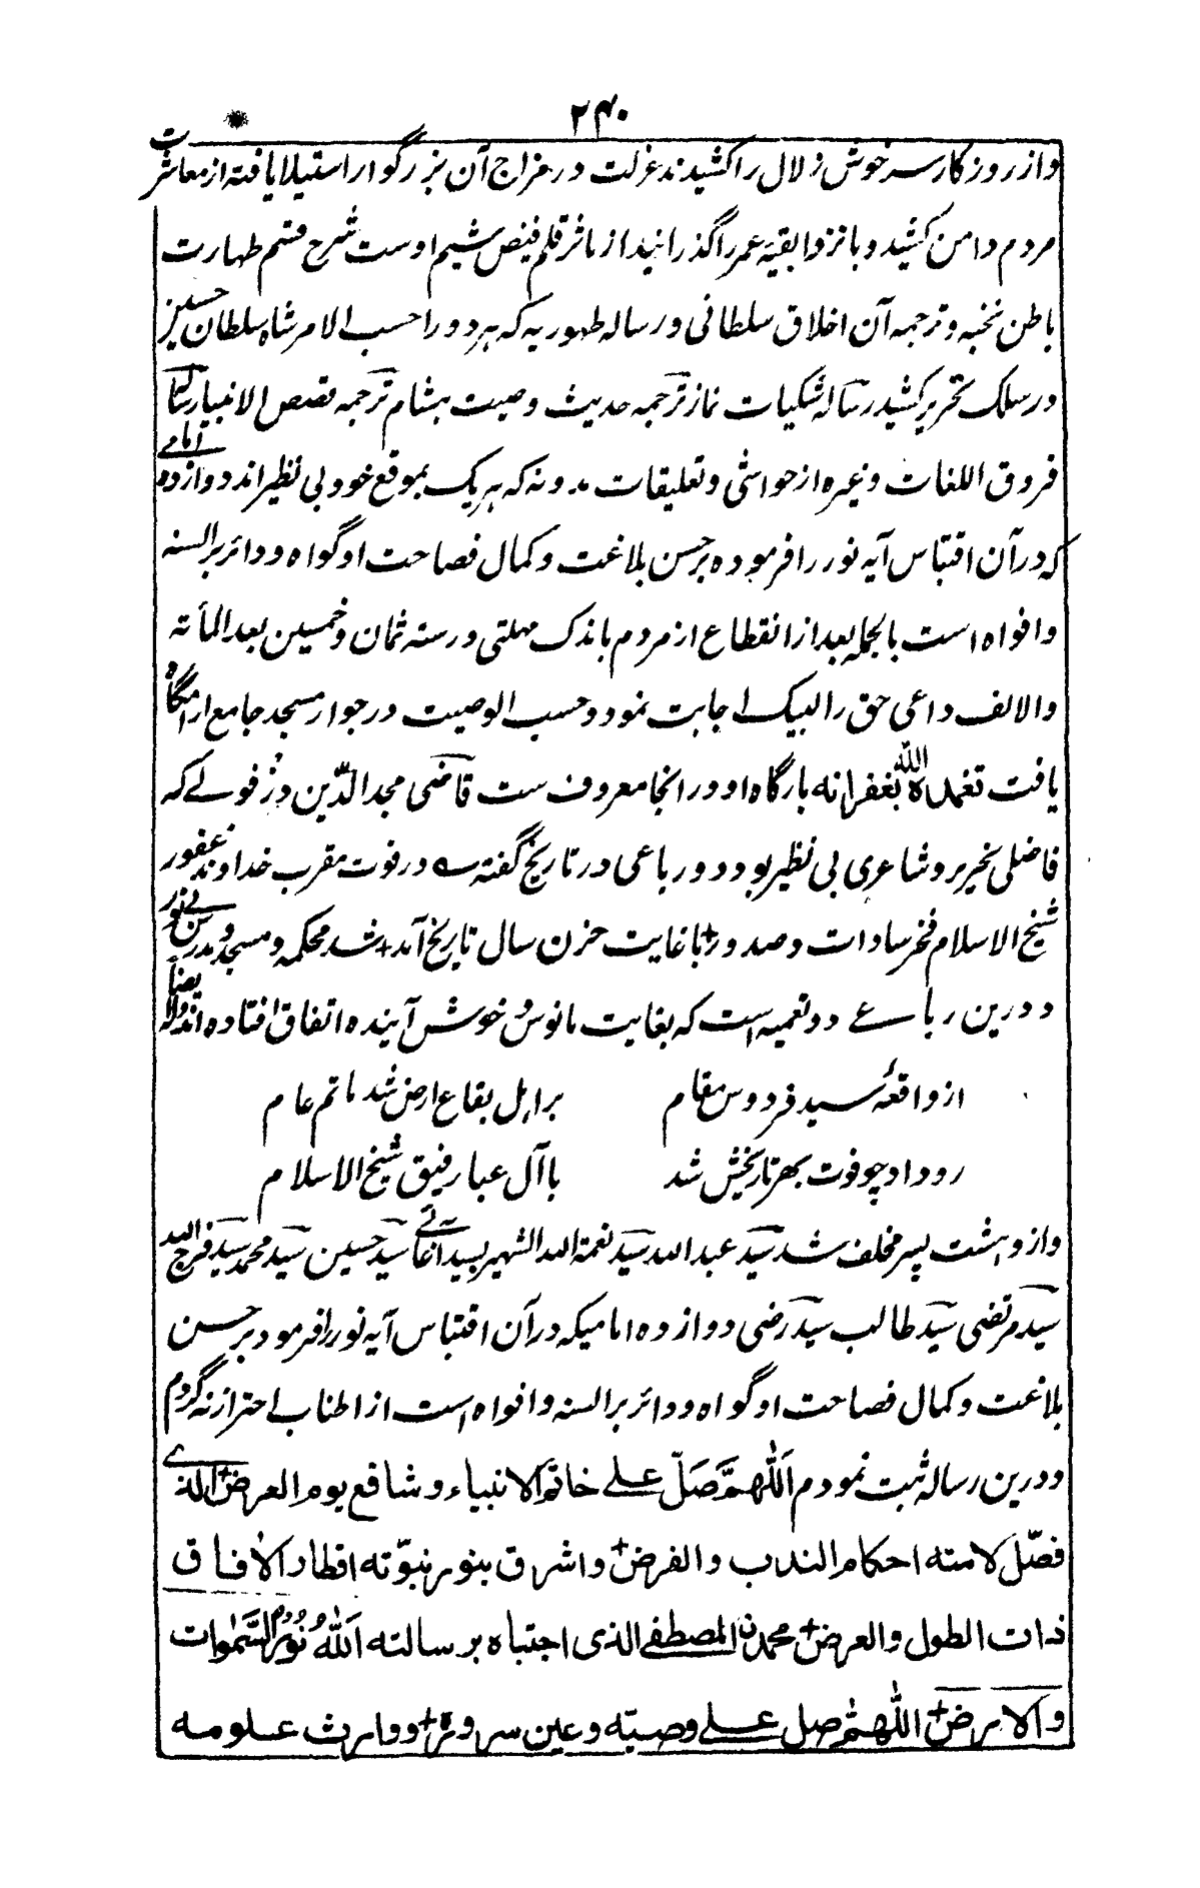 ۲۴۰
و از روزگار سرخوش زلال را کشیدند عزلت در مزاج آن بزرگوار استیلا یافته از معاشرت
مردم دامن کشید و بانزوا بقیهٔ عمر را گذرانید از ماثر قلم فیض شیم اوست شرح قسم طهارت
باطن نخبه و ترجمه آن اخلاق سلطانی و رساله طهوریه که هر دو را حسب الامر شاه سلطان حسین
در سلک تحریر کشید رساله شکیات نماز ترجمه حدیث وصیت هشام ترجمه قصص الانبیا رساله
فروق اللغات وغیره از حواشی و تعلیقات مدونه که هر یک بموقع خود بی نظیر اند دوازده امامی
که در آن اقتباس آیه نور را فرموده بر حسن بلاغت و کمال فصاحت او گواه و دائر بر السنه
و افواه است بالجمله بعد از انقطاع از مردم باندک مهلتی در سنه ثمان و خمسین بعد المأته
والالف داعی حق را لبیک اجابت نمود و حسب الوصیت در جوار مسجد جامع ارامگاه
یافت تغمده الله بغفرانه بارگاه او در انجا معروف ست قاضی مجد الدّین دزفولے که
فاضلی نحریر و شاعری بی نظیر بود دو رباعی در تاریخ گفته ــه در فوت مقرب خداوند غفور
شیخ الاسلام فخر سادات و صدور + با غایت حزن سال تاریخ آمد + شد محکمه و مسجد و مدرس بی نور
و درین رباعے دو تعمیه است که بغایت مانوس و خوش آینده اتفاق افتاده اند وله ایضاً
از واقعهٔ سید فردوس مقام
بر اهل بقاع ارض شد ماتم عام
رو داد چو فوت بهر تاریخش شد
با آل عبا رفیق شیخ الاسلام
و از و هشت پسر مخلف شد سید عبد الله سید نعمة الله الشهیر بسید آغائے سید حسین سید محمد سید فرج الله
سید مرتضی سید طالب سید رضی دوازده امامیکه در آن اقتباس آیه نور را فرمود بر حسن
بلاغت و کمال فصاحت او گواه و دائر بر السنه و افواه است از اطناب احتراز نه کردم
و درین رساله ثبت نمودم اَللّٰهمَّ صَلّ علے خاتم الانبیاء و شافع یوم العرض + الذے
فصّل لامته احکام الندب والفرض + واشرق بنور نبوّته اقطار الاٰفاق
ذات الطول والعرض + محمدن المصطفے الذی اجتباه برسالته اَللّٰهُ نُوْرُ السَّمٰوات
والارض + اللّٰهم صل علے وصیّه وعین سروره + ووارث علومه